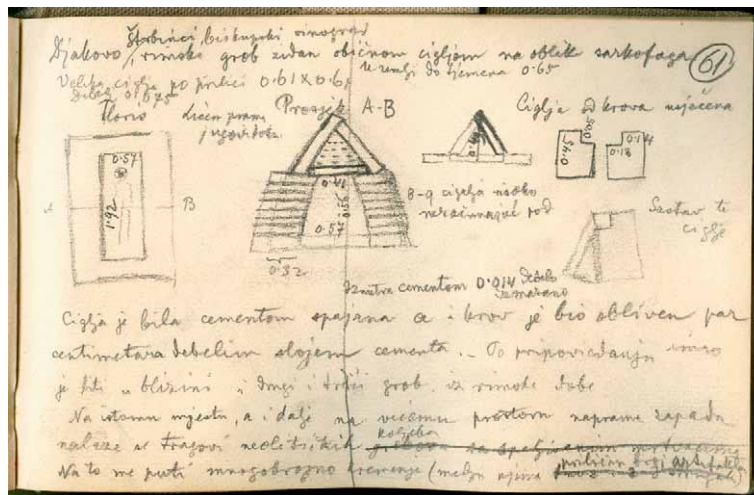 Štrbinci, biskupski vinograd
Djakovo, rimski grob zidan običnom cigljom na oblik sarkofaga
61
u zemlji do tjemena 0.65
Velika ciglja po prilici 0.61 X 0.6
Tloris
Licem prama jugoistoku
Presjek A-B
Ciglja od krova urječena
0.57
1.92
A
B
0.41
0.56
0.57
0.32
0.45
0.14
0.18
8-9 ciglja visoko
pod
Sastav te
ciglje
Iznutra cementom 0.014 debelo
izmazano
Ciglja je bila cementom spajana a i krov je bio obliven par
centimetara debelim slojem cementa. - Po pripoviedanju
je biti u blizini i drugi i treći grob iz rimske dobe
Na istomu mjestu, a i dalje na većemu prostoru naprama zapadu
nalaze se tragovi neolitskih
Na to me puti mnogobrojno kremenje (medju njima